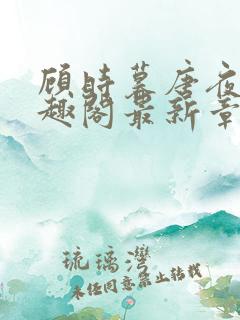 顾时暮唐夜
趣阁最新章
琉璃湾
未经同意禁止转载